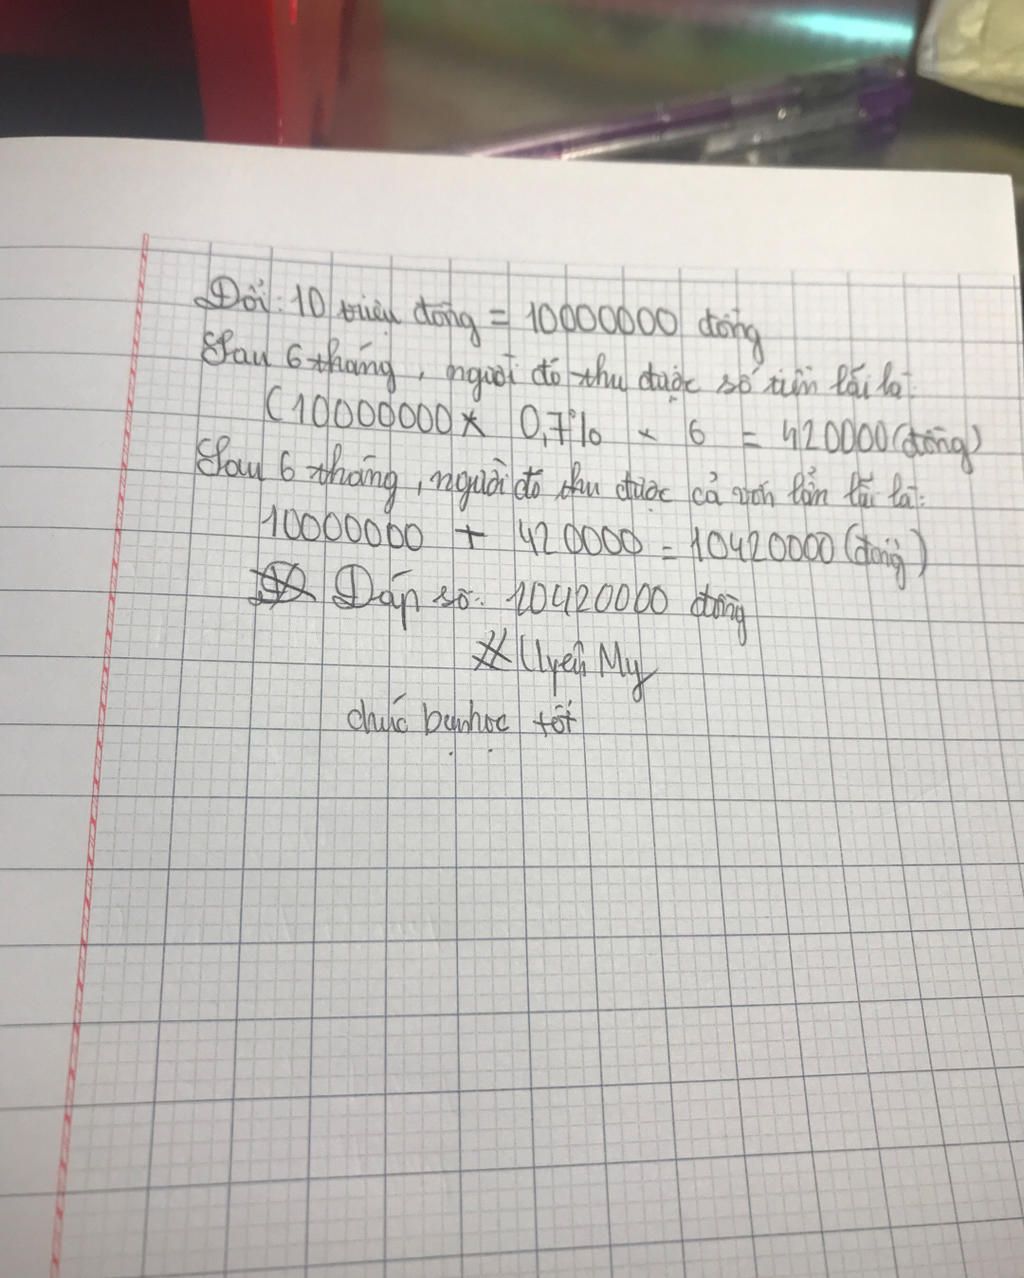 Đổi: 10 triệu đồng = 10000000 đồng
Sau 6 tháng, người đó thu được số tiền lãi là:
(10000000 × 0,7% × 6 = 420000 (đồng)
Sau 6 tháng, người đó thu được cả vốn lẫn lãi là:
10000000 + 420000 = 10420000 (đồng)
Đáp số: 10420000 đồng
# Uyên My
chúc bạn học tốt